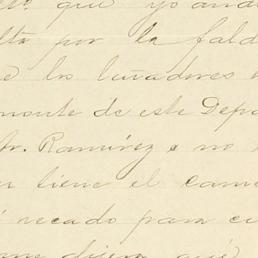 que yo and
lta por la fald
e los leñadores
monte de este Depa
Sr. Ramírez, no
tiene el cam
recado para
dijera qué